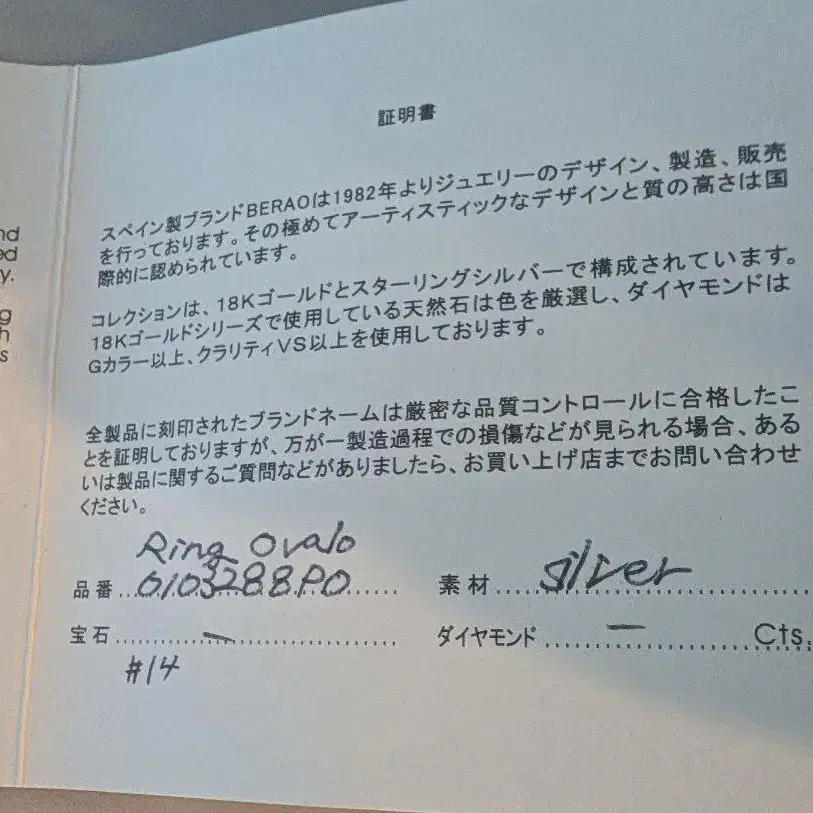 nd
ed
y.
g
h
s
証明書
スペイン製ブランドBERAOは1982年よりジュエリーのデザイン、製造、販売
を行っております。その極めてアーティスティックなデザインと質の高さは国
際的に認められています。
コレクションは、18Kゴールドとスターリングシルバーで構成されています。
18Kゴールドシリーズで使用している天然石は色を厳選し、ダイヤモンドは
Gカラー以上、クラリティVS以上を使用しております。
全製品に刻印されたブランドネームは厳密な品質コントロールに合格したこ
とを証明しておりますが、万が一製造過程での損傷などが見られる場合、ある
いは製品に関するご質問などがありましたら、お買い上げ店までお問い合わせ
ください。
Ring Ovalo
品番 010328.8PO 素材 silver
宝石 — ダイヤモンド — Cts.
#14